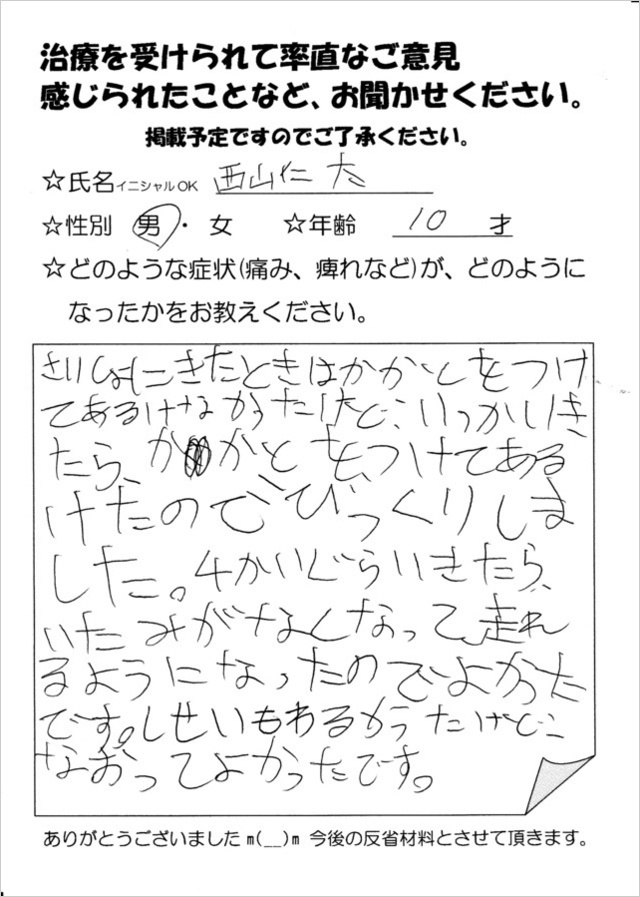 治療を受けられて率直なご意見
感じられたことなど、お聞かせください。
掲載予定ですのでご了承ください。
☆氏名イニシャルOK 西山仁大
☆性別 男・女 ☆年齢 10才
☆どのような症状(痛み、痺れなど)が、どのように
なったかをお教えください。
さいしょにきたときはかかとをつけ
てあるけなかったけど、いっかいき
たら、かかとをつけてある
けたのでびっくりしま
した。4かいぐらいいきたら、
いたみがなくなって、走れ
るようになったのでよかった
です。しせいもわるかったけど
なおってよかったです。
ありがとうございました m(__)m 今後の反省材料とさせて頂きます。